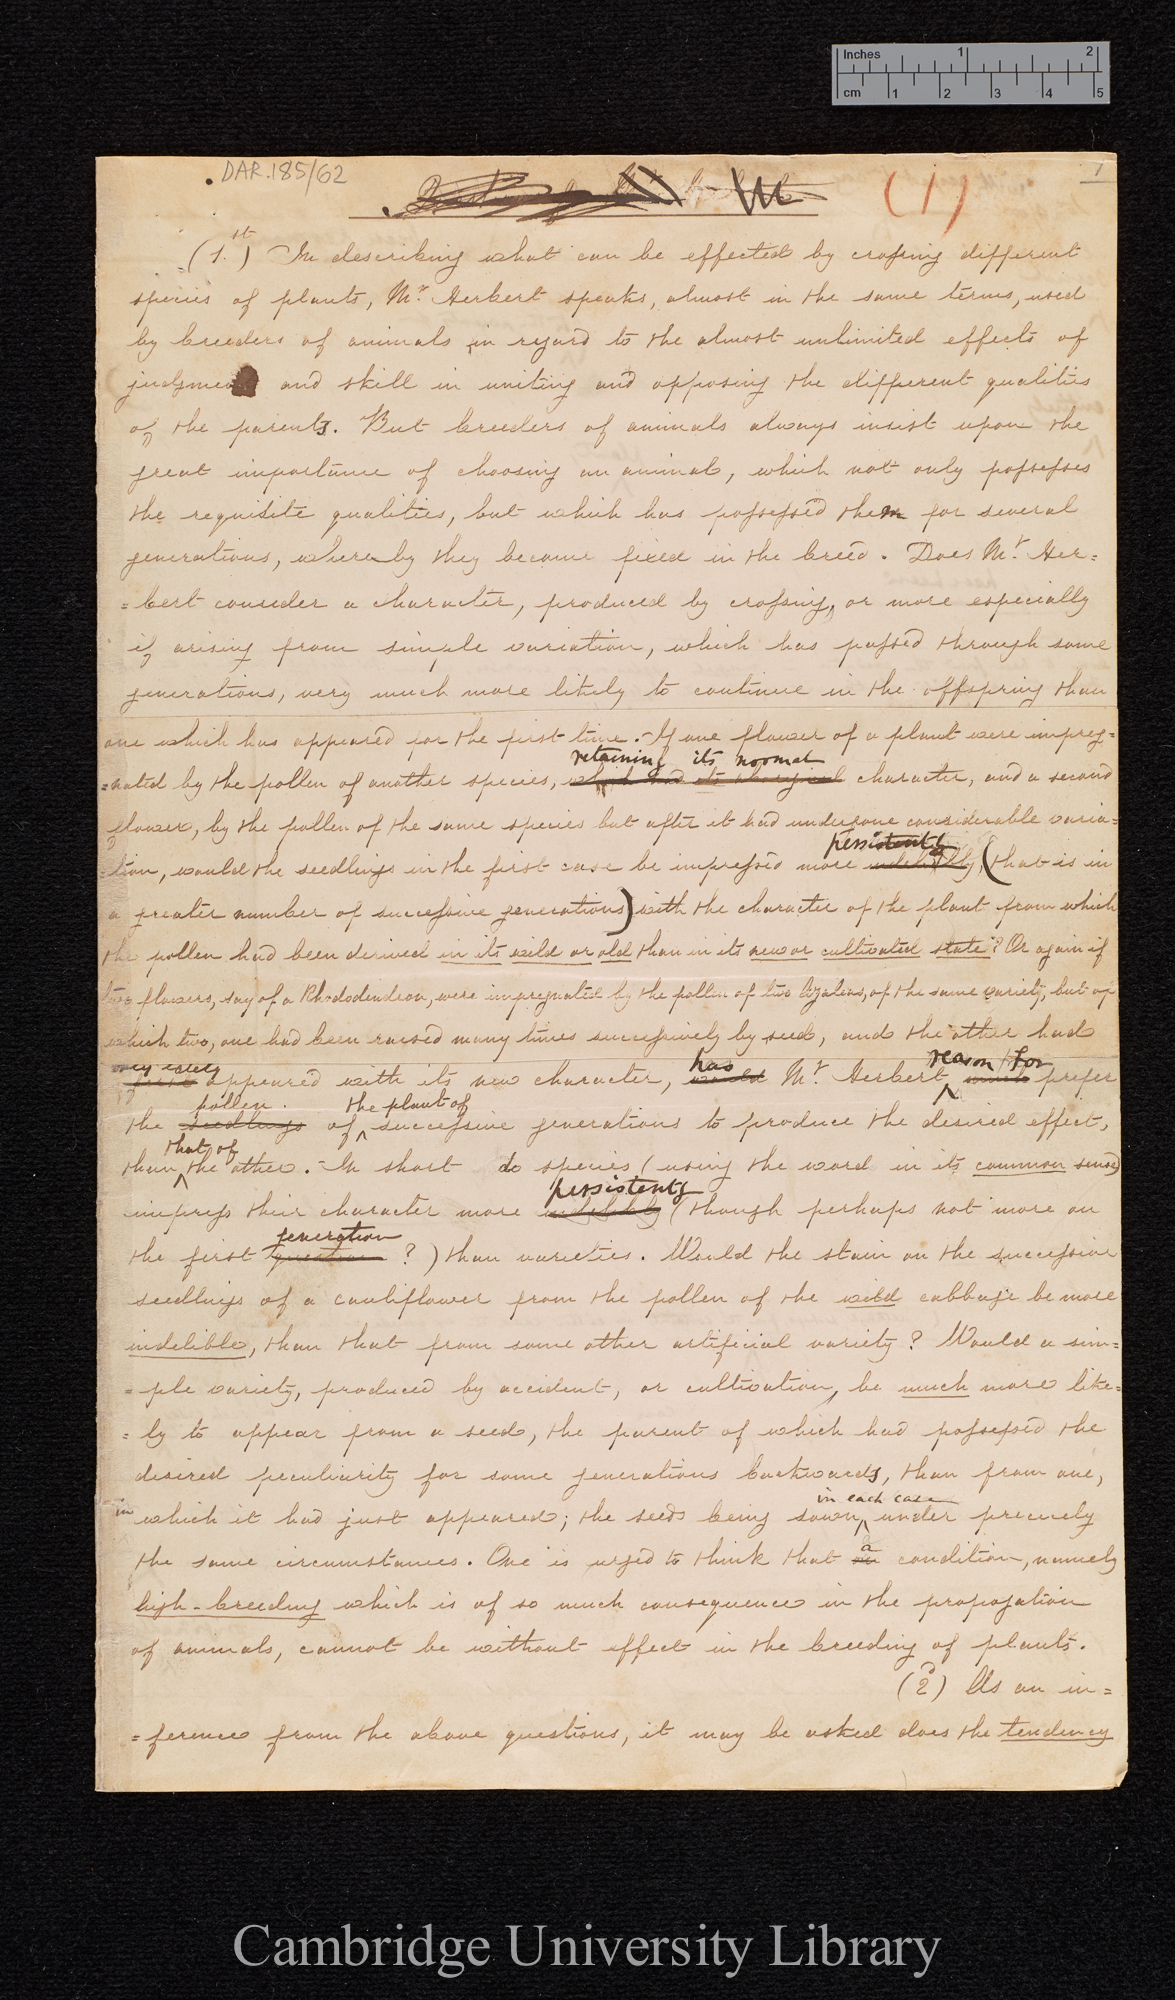 Inches 1 2
cm 1 2 3 4 5
DAR.185/62
(1)
1
(1.st) In describing what can be effected by crossing different
species of plants, Mr. Herbert speaks, almost in the same terms, used
by breeders of animals in regard to the almost unlimited effects of
judgment and skill in uniting and opposing the different qualities
of the parents. But breeders of animals always insist upon the
great importance of choosing an animal, which not only possesses
the requisite qualities, but which has possessed them for several
generations, whereby they become fixed in the breed. Does Mr. Her=
=bert consider a character, produced by crossing, or more especially
if arising from simple variation, which has passed through some
generations, very much more likely to continue in the offspring than
one which has appeared for the first time.- If one flower of a plant were impreg=
retaining its normal
=nated by the pollen of another species, which had its aboriginal character, and a second
flower, by the pollen of the same species but after it had undergone considerable varia=
persistently
=tion, would the seedlings in the first case be impressed more indelibly, (that is in
a greater number of successive generations) with the character of the plant from which
the pollen had been derived in its wild or old than in its new or cultivated state? Or again if
two flowers, say of a Rhododendron, were impregnated by the pollen of two Azaleas, of the same variety, but of
which two, one had been raised many times successively by seed, and the other had
only lately has reason for
first appeared with its new character, would Mr. Herbert much prefer
pollen. the plant of
the seedlings of successive generations to produce the desired effect,
that of
than the other.- In short do species (using the word in its common sense)
persistently
impress their character more indelibly (though perhaps not more on
generation
the first question ?) than varieties. Would the stain on the successive
seedlings of a cauliflower from the pollen of the wild cabbage be more
indelible, than that from some other artificial variety? Would a sim=
=ple variety, produced by accident, or cultivation, be much more like=
=ly to appear from a seed, the parent of which had possessed the
desired peculiarity for some generations backwards, than from one,
in each case
in which it had just appeared; the seeds being sown, under precisely
a
the same circumstances. One is urged to think that condition, namely
high-breeding which is of so much consequence in the propogation
of animals, cannot be without effect in the breeding of plants.
(2d) As an in=
=ference from the above questions, it may be asked does the tendency
Cambridge University Library